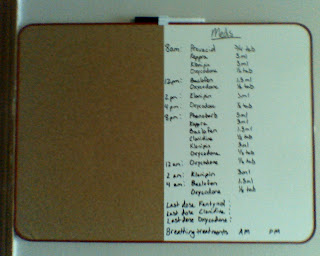 Meds
8am: Prevacid 3/4 tab
Keppra 3ml
Klonipin 3ml
Oxycodone 1/2 tab
12pm: Baclofen 1.3ml
Oxycodone 1/2 tab
2pm: Klonipin 3ml
4pm: Oxycodone 1/2 tab
8pm: Phenobarb 5ml
Keppra 3ml
Baclofen 1.3ml
Clonidine 1/2 tab
Klonipin 3ml
Oxycodone 1/2 tab
12am: Oxycodone 1/2 tab
2am: Klonipin 3ml
4am: Baclofen 1.3ml
Oxycodone 1/2 tab
Last dose Fentynol:
Last dose Clonidine:
Last dose Oxycodone:
Breathing treatments AM PM